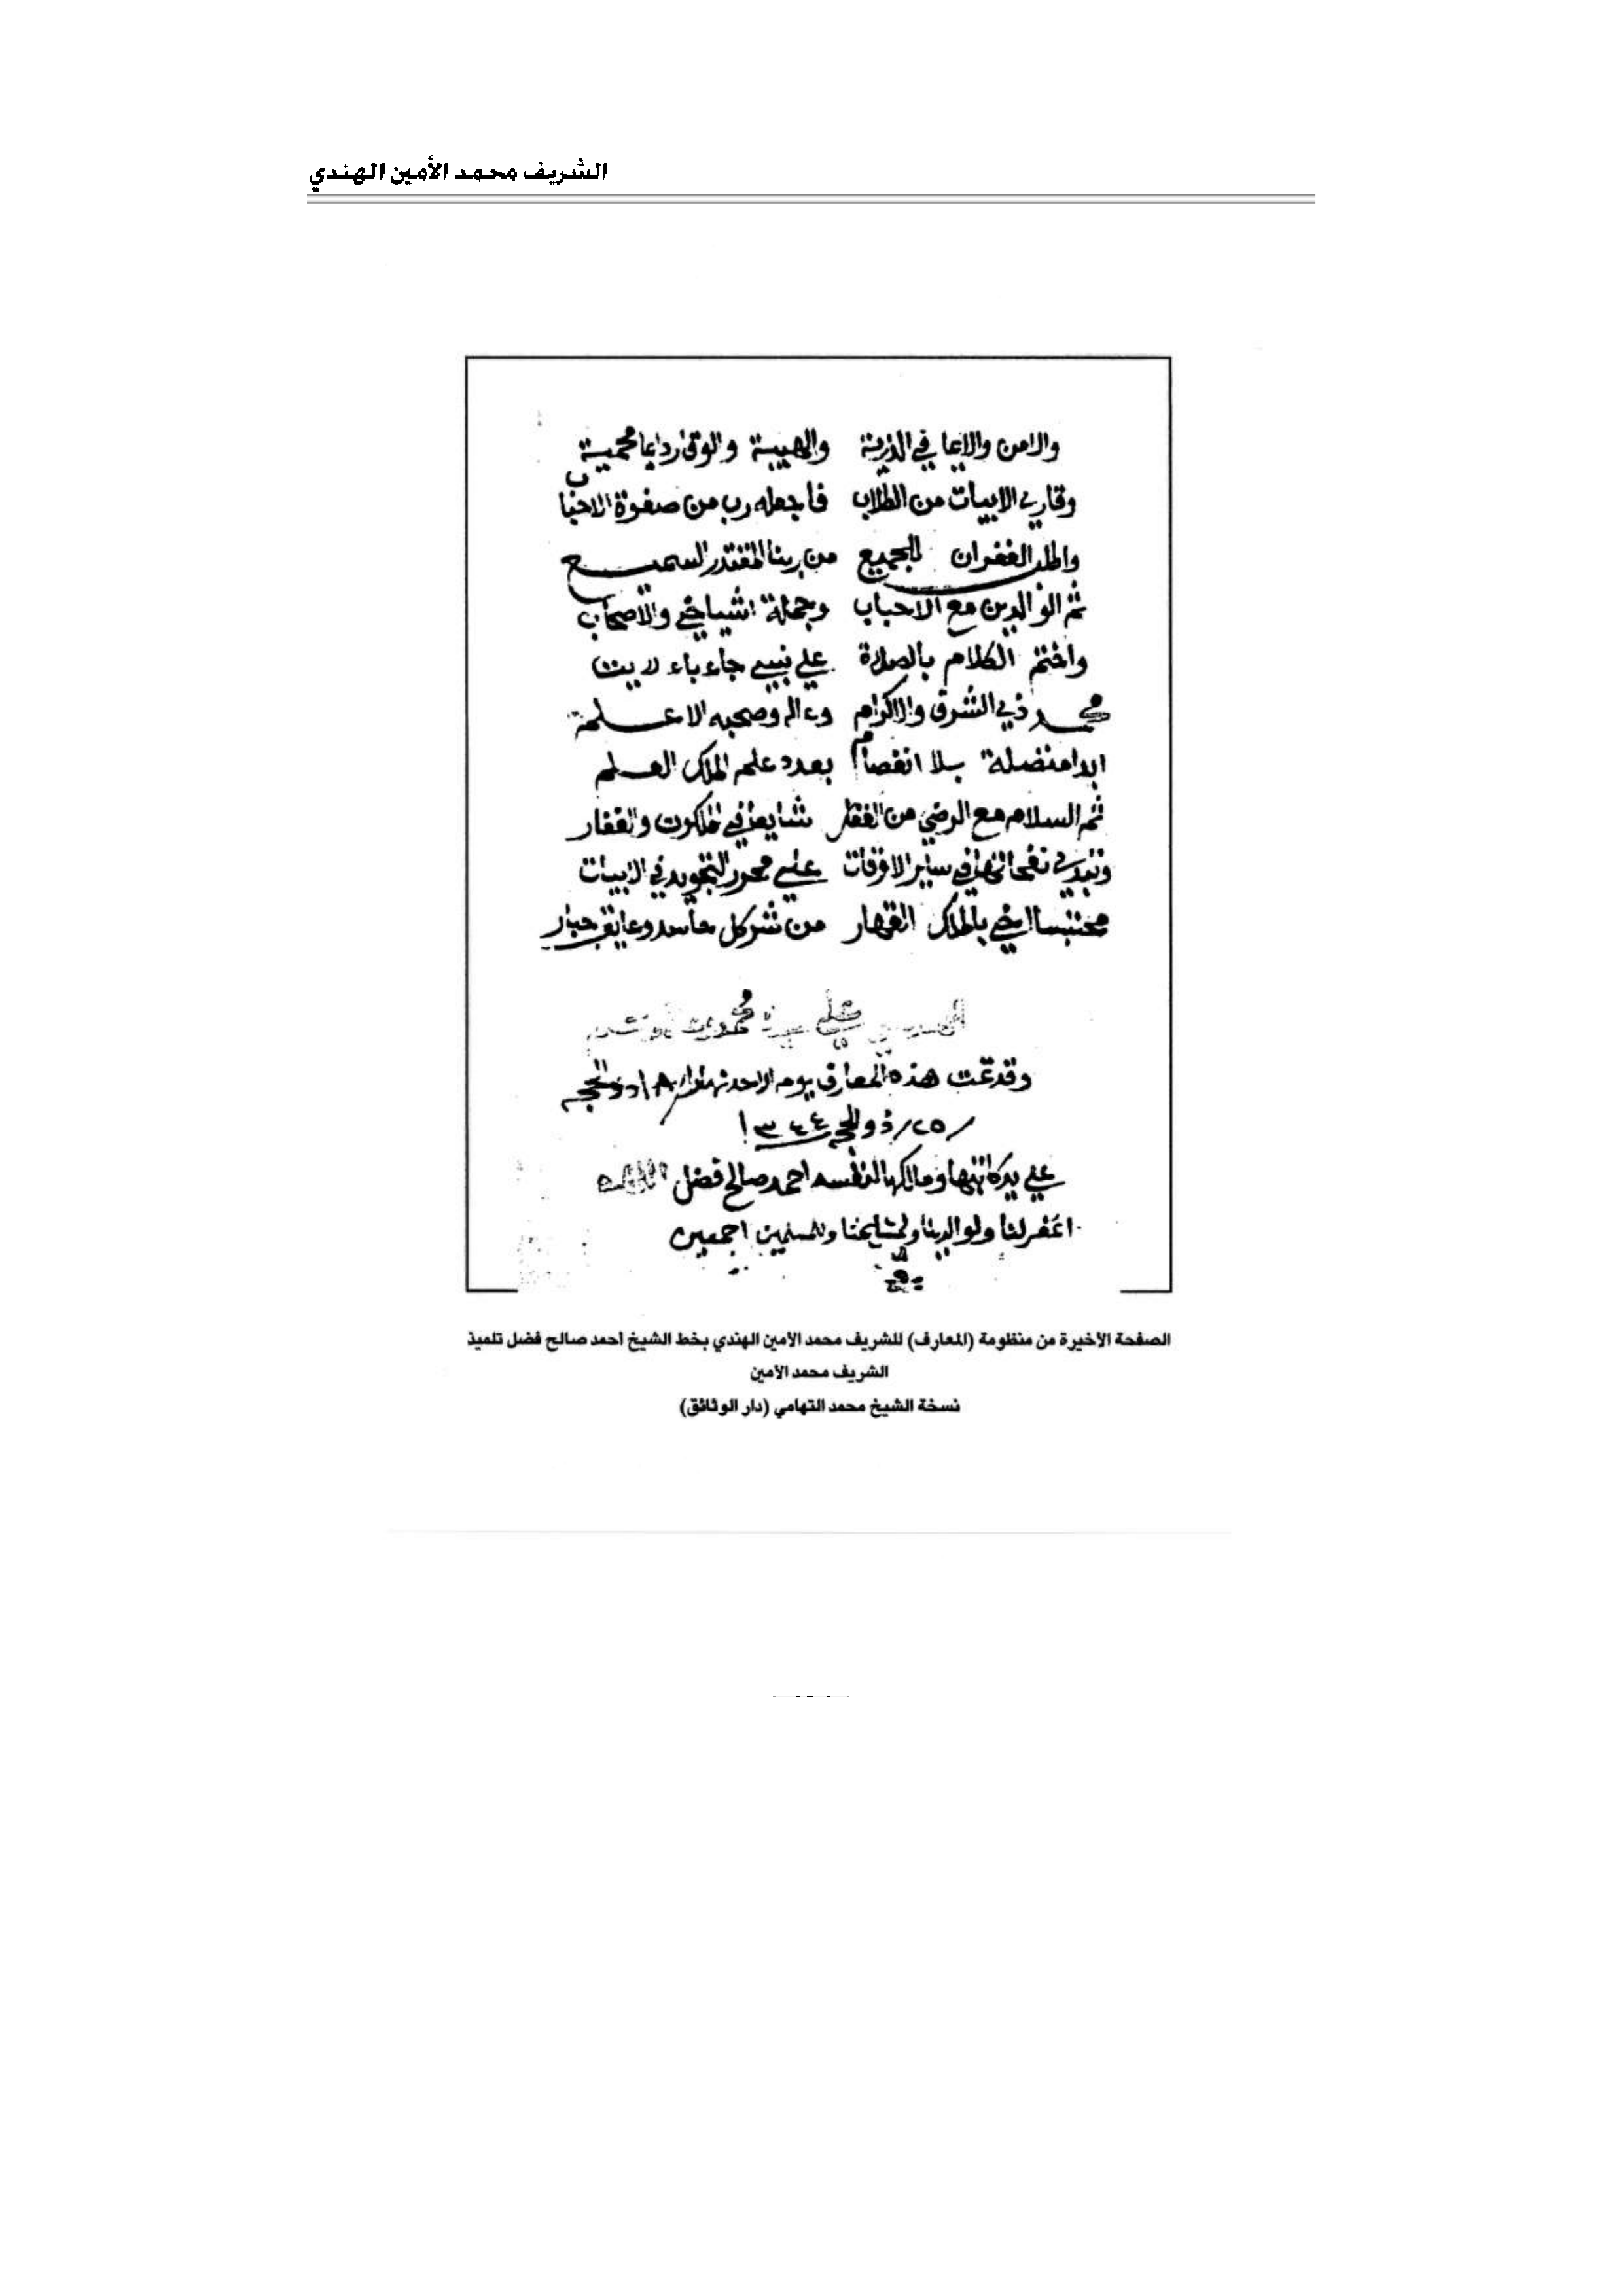 الشريف محمد الأمين الهندي
والامن والايما في الذرية والهيبة والوقار دايما محمية
وقاري الابيات من الطلاب فاجعله رب من صفوة الاحباب
واطلب الغفران للجميع من ربنا المقتدر السميع
ثم الوالدين مع الاحباب وجملة اشياخي والاصحاب
واختم الكلام بالصلاة علي نبي جاء باء
محمد ذي الشرق والاكرام وءاله وصحبه الاعلمة
ابدا بلا انفصام بعدد علم الملك العلم
ثم السلام مع الرضي من الغفار شايعا في ملكوت والقفار
نفحاتها في ساير الاوقات علي محرر التجويد في الابيات
اخي بالملك القهار من شر كل حاسد وعايق جبار
علي
وقد تمت هذه المعارف يوم الاحد ذو الحجه
/٢٥/ ذو الحجه ١٣٤٤
علي يد كاتبها ومالكها لنفسه احمد صالح فضل
اغفر لنا ولوالدينا ولمشايخنا وللمسلمين اجمعين
الصفحة الأخيرة من منظومة (المعارف) للشريف محمد الأمين الهندي بخط الشيخ أحمد صالح فضل تلميذ
الشريف محمد الأمين
نسخة الشيخ محمد التهامي (دار الوثائق)